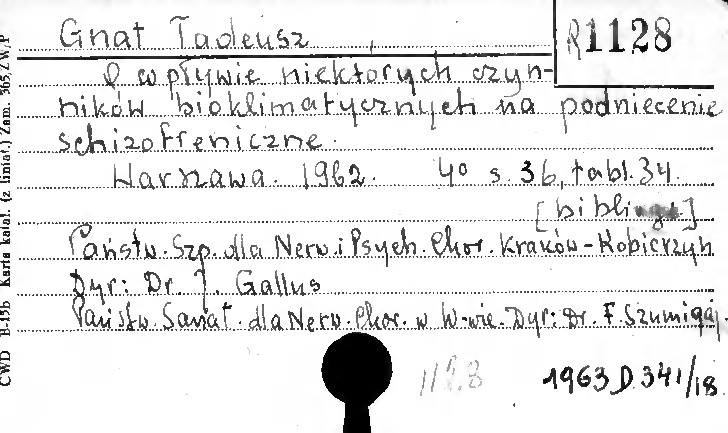 Gnat Tadeusz
R1128
O wpływie niektorych czyn-
ników bioklimatycznych na podniecenie
schizofreniczne.
Warszawa. 1962. 4° s. 36, tabl. 34.
[bibliogr.]
Państw. Szp. dla Nerw. i Psych. Chor. Kraków-Kobierzyn
Dyr: Dr. J. Gallus
Państw. Sanat. dla Nerw. Chor. w W-wie. Dyr: Dr. F. Szumigaj.
1963 D 341/18
CWD B-15b Karta katal. (z liniat.) Zam. 365/ZW/P